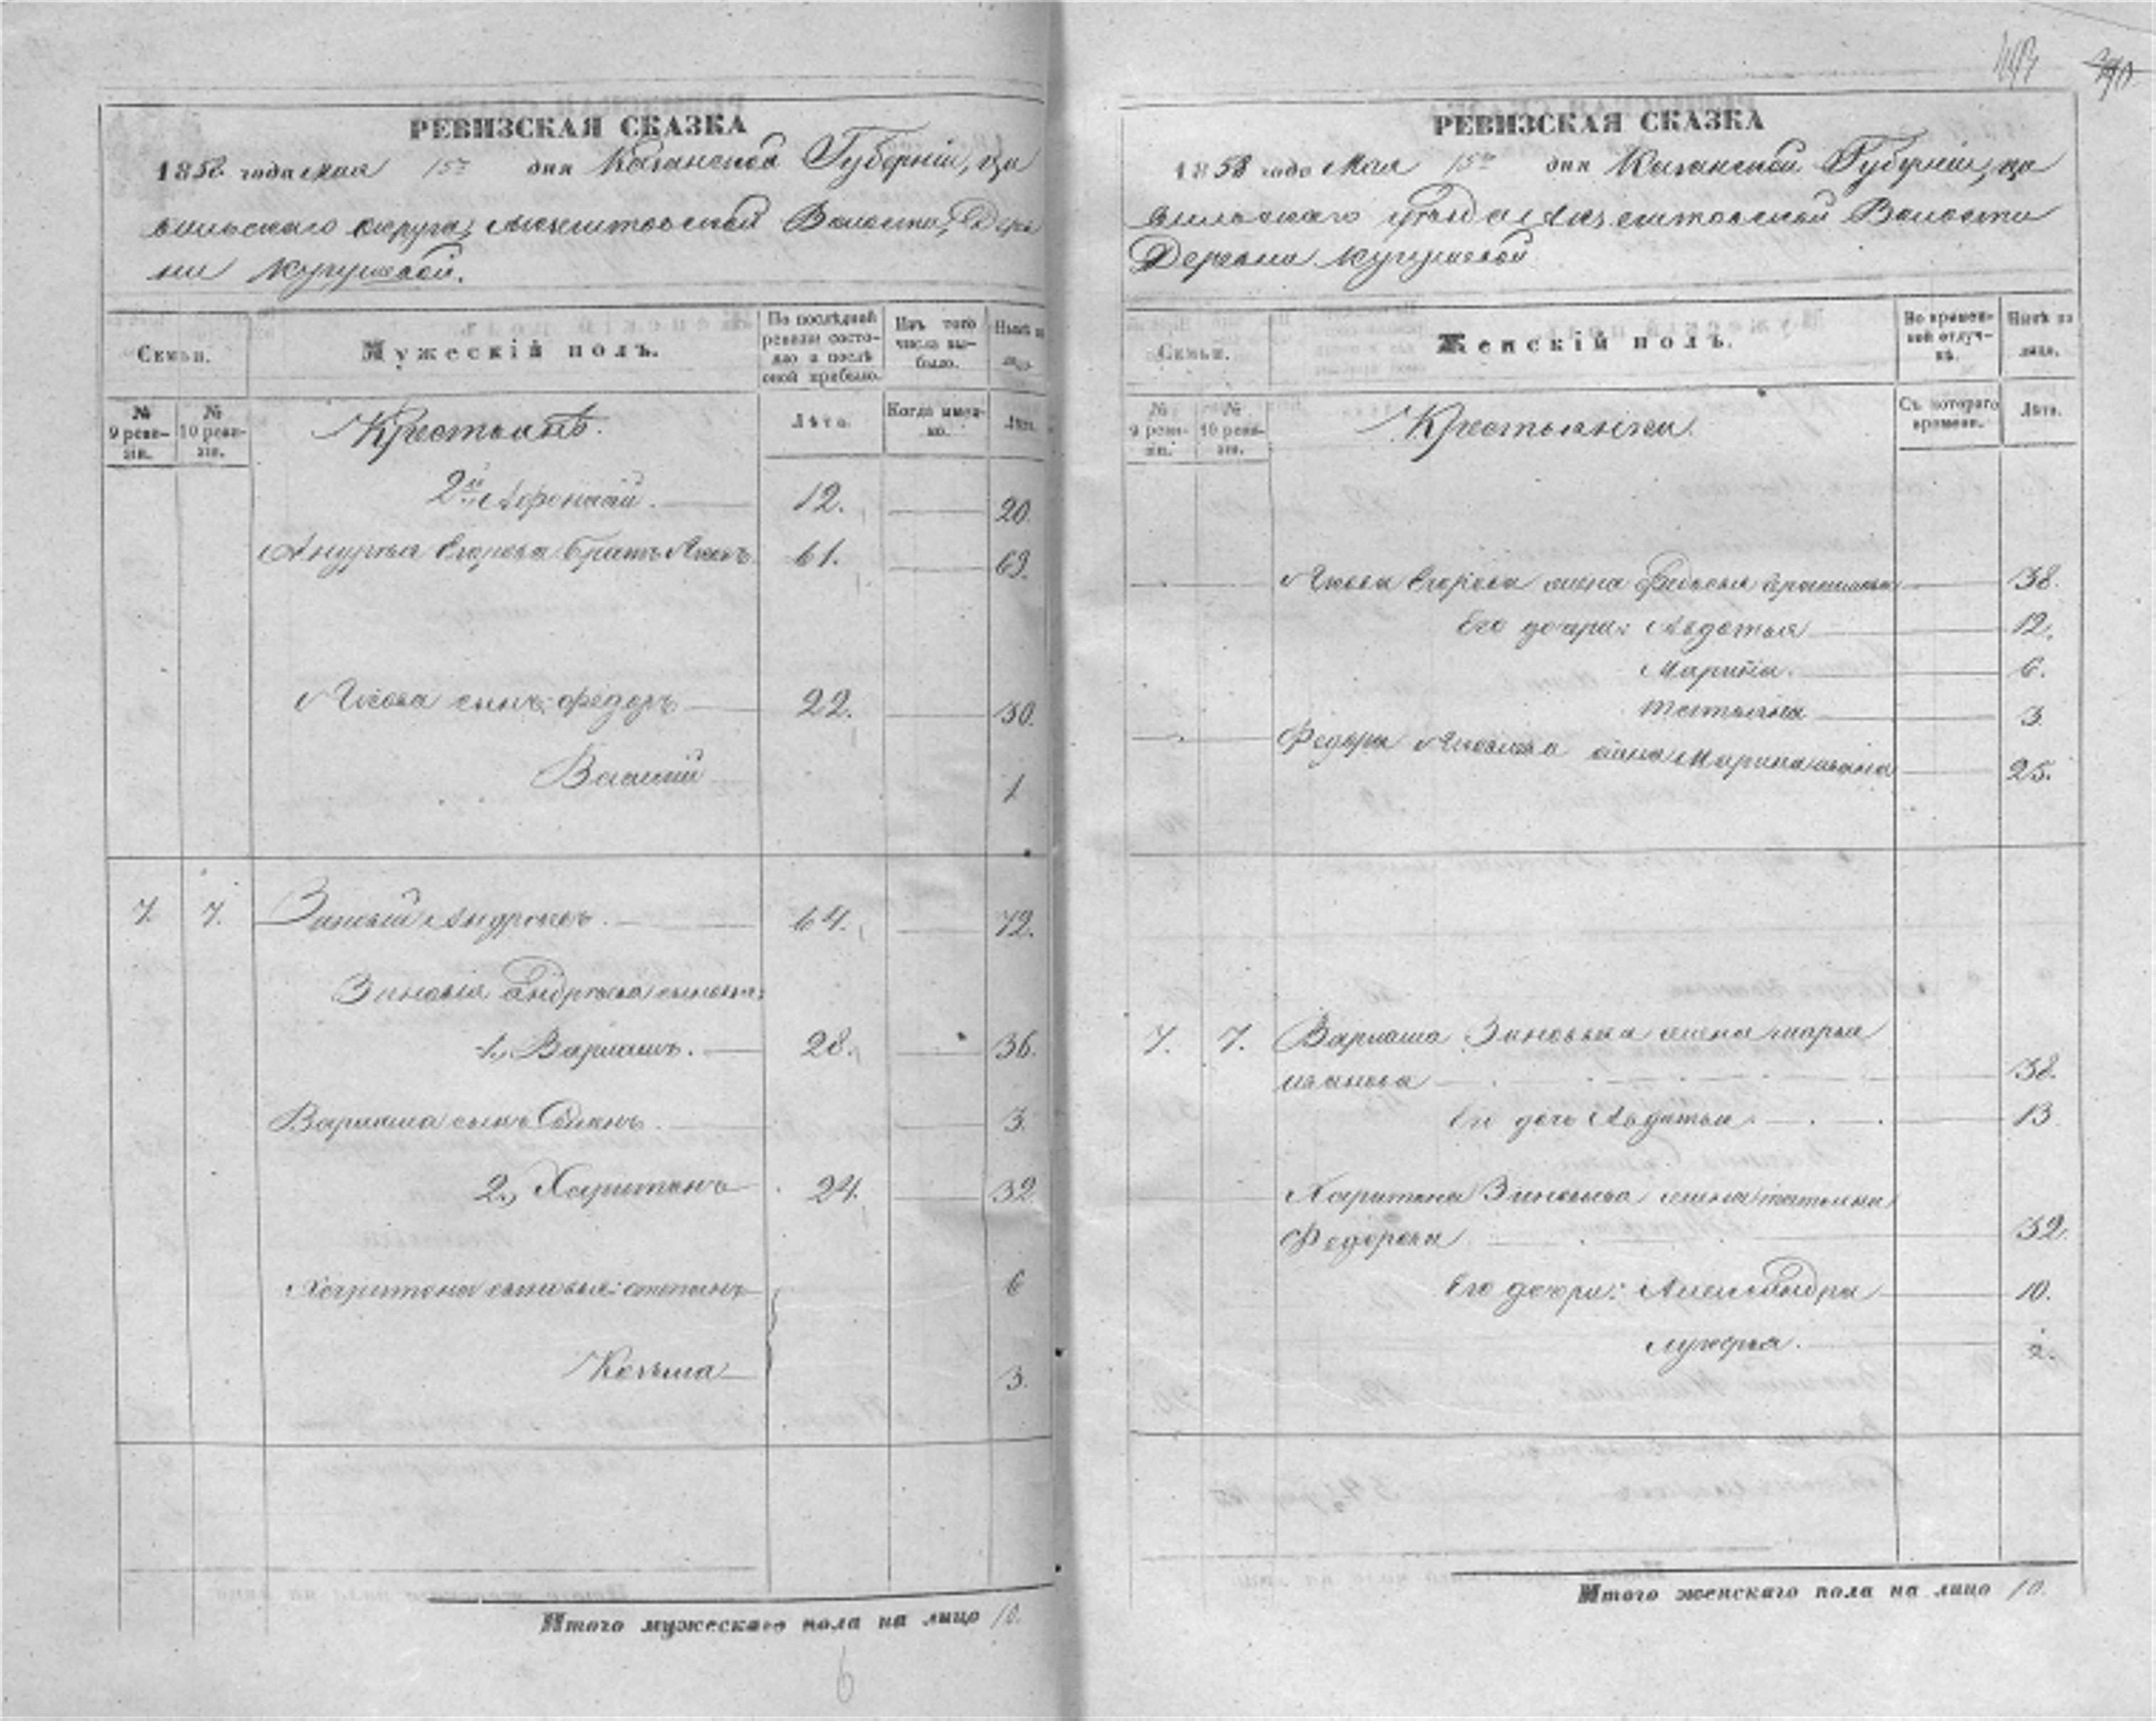 РЕВИЗСКАЯ СКАЗКА
1858 года мая 15го дня Казанской Губерніи, Ци
вильскаго округа, Волости, Дерев
ни Кугушевой.
Семьи.
Мужескій полъ.
По послѣдней ревизіи состояло и послѣ оной прибыло.
Изъ того числа выбыло.
Нынѣ на лицо.
№ 9 ревизіи.
№ 10 ревизіи.
Крестьянѣ.
Лѣта.
Когда именно.
Лѣта.
2й Афонасій. 12. 20.
Егорова братъ Яковъ 61. 69.
Якова сынъ Федоръ 22. 30.
Василій 1
7. 7. Зиновій Андреевъ. 64. 72.
Зиновія Андреева сыновья:
1, Варламъ. 28. 36.
Варлама сынъ 3.
2, Харитонъ 24. 32
Харитона сыновья: Степанъ 6
Козьма 3.
Итого мужескаго пола на лицо 10.
6
РЕВИЗСКАЯ СКАЗКА
1858 года Мая 15го дня Казанской Губерніи, Ци
вильскаго уѣзда Волости
Деревни Кугушевой
Семьи.
Женскій полъ.
Во временной отлучкѣ.
Нынѣ на лицо.
№ 9 ревизіи.
№ 10 ревизіи.
Крестьянки.
Съ котораго времени.
Лѣта.
Якова Егорова жена Федосья 38.
Его дочери: Авдотья 12.
Марина. 6.
Татьяна 3.
Федора Яковлева жена Марина Иванова 25.
7. 7. Варлама Зиновьева жена Марья
Иванова 38.
Ея дочь Авдотья 13
Харитона Зиновьева жена Татьяна
Федорова 32.
Его дочери: Александра 10.
Лукерья. 2.
Итого женскаго пола на лицо 10.